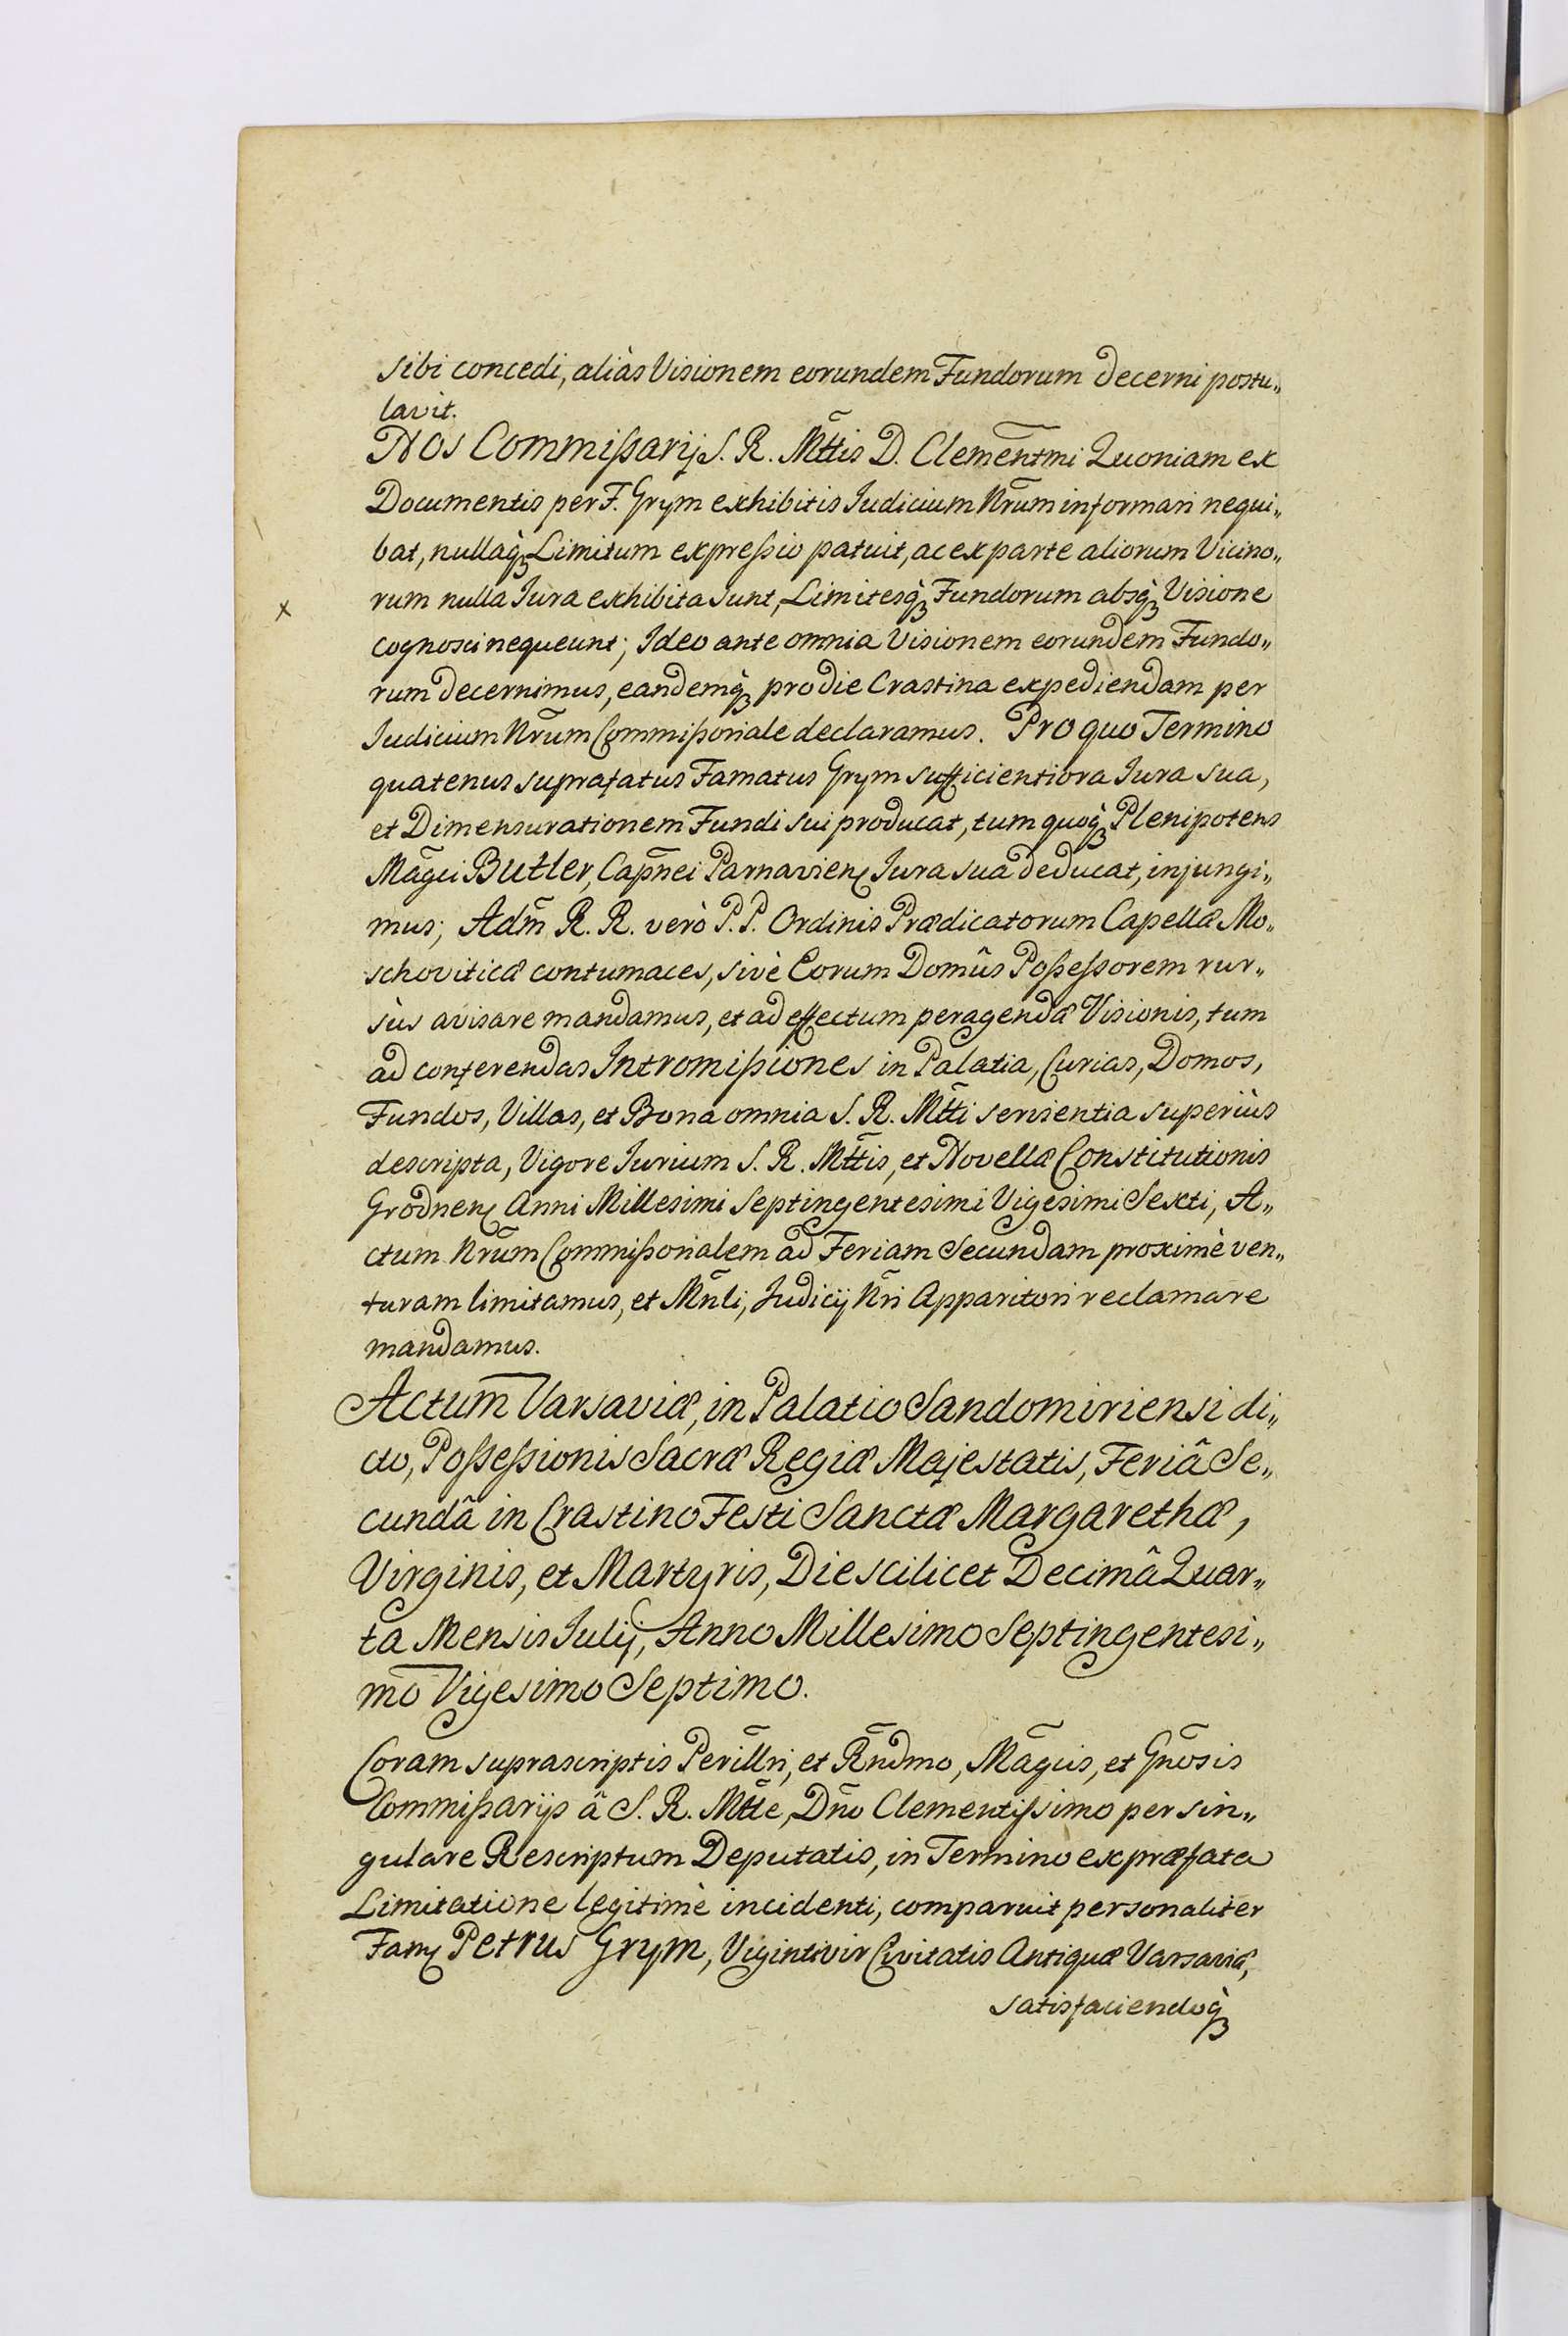 sibi concedi, aliàs Visionem eorundem Fundorum decerni postu„
lavit.
Nos Commißarij S. R. Mttis D. Clementmi Quoniam ex
Documentis per F. Grym exhibitis Iudicium Nrum informari nequi„
bat, nullaq̀ȝ Limitum expreßio patuit, ac ex parte aliorum Vicino„
x rum nulla Iura exhibita sunt, Limitesq̀ȝ Fundorum absq̀ȝ Visione
cognosci nequeunt; Ideo ante omnia Visionem eorundem Fundo„
rum decernimus, eandemq̀ȝ pro die Crastina expediendam per
Iudicium Nrum Commißoriale declaramus. Pro quo Termino
quatenus suprafatus Famatus Grym sufficientiora Iura sua,
et Dimensurationem Fundi sui producat, tum quoq̀ȝ Plenipotens
Mãgci Butler, Capñei Parnavienȝ Iura sua deducat, injungi„
mus; Adm̃ R. R. verò P. P. Ordinis Prædicatorum Capellæ Mo„
schoviticæ contumaces, sivè Eorum Domûs Poßeßorem rur„
sùs avisare mandamus, et ad effectum peragendæ Visionis, tum
ad conferendas Intromißiones in Palatia, Curias, Domos,
Fundos, Villas, et Bona omnia S. R. Mtti servientia superiùs
descripta, Vigore Iurium S. R. Mttis, et Novellæ Constitutionis
Grodnenȝ Anni Millesimi Septingentesimi Vigesimi Sexti, A„
ctum Nrum Commißorialem ad Feriam Secundam proximè ven„
turam limitamus, et Mñli, Judicij Nri Apparitori reclamare
mandamus.
Actum Varsaviæ, in Palatio Sandomiriensi di„
cto, Poßeßionis Sacræ Regiæ Majestatis, Feriâ Se„
cundâ in Crastino Festi Sanctæ Margarethæ,
Virginis, et Martyris, Die scilicet Decimâ Quar„
ta Mensis Iulij, Anno Millesimo Septingentesi„
mo Vigesimo Septimo.
Coram suprascriptis Perillri, et Rñdmo, Mãgcis, et Gñosis
Commißarijs â S. R. Mtte, Dño Clementißimo per sin„
gulare Rescriptum Deputatis, in Termino ex præfata
Limitatione legitimè incidenti, comparuit personaliter
Famȝ Petrus Grym, Vigintivir Civitatis Antiquæ Varsaviæ,
satisfaciendoq̀ȝ